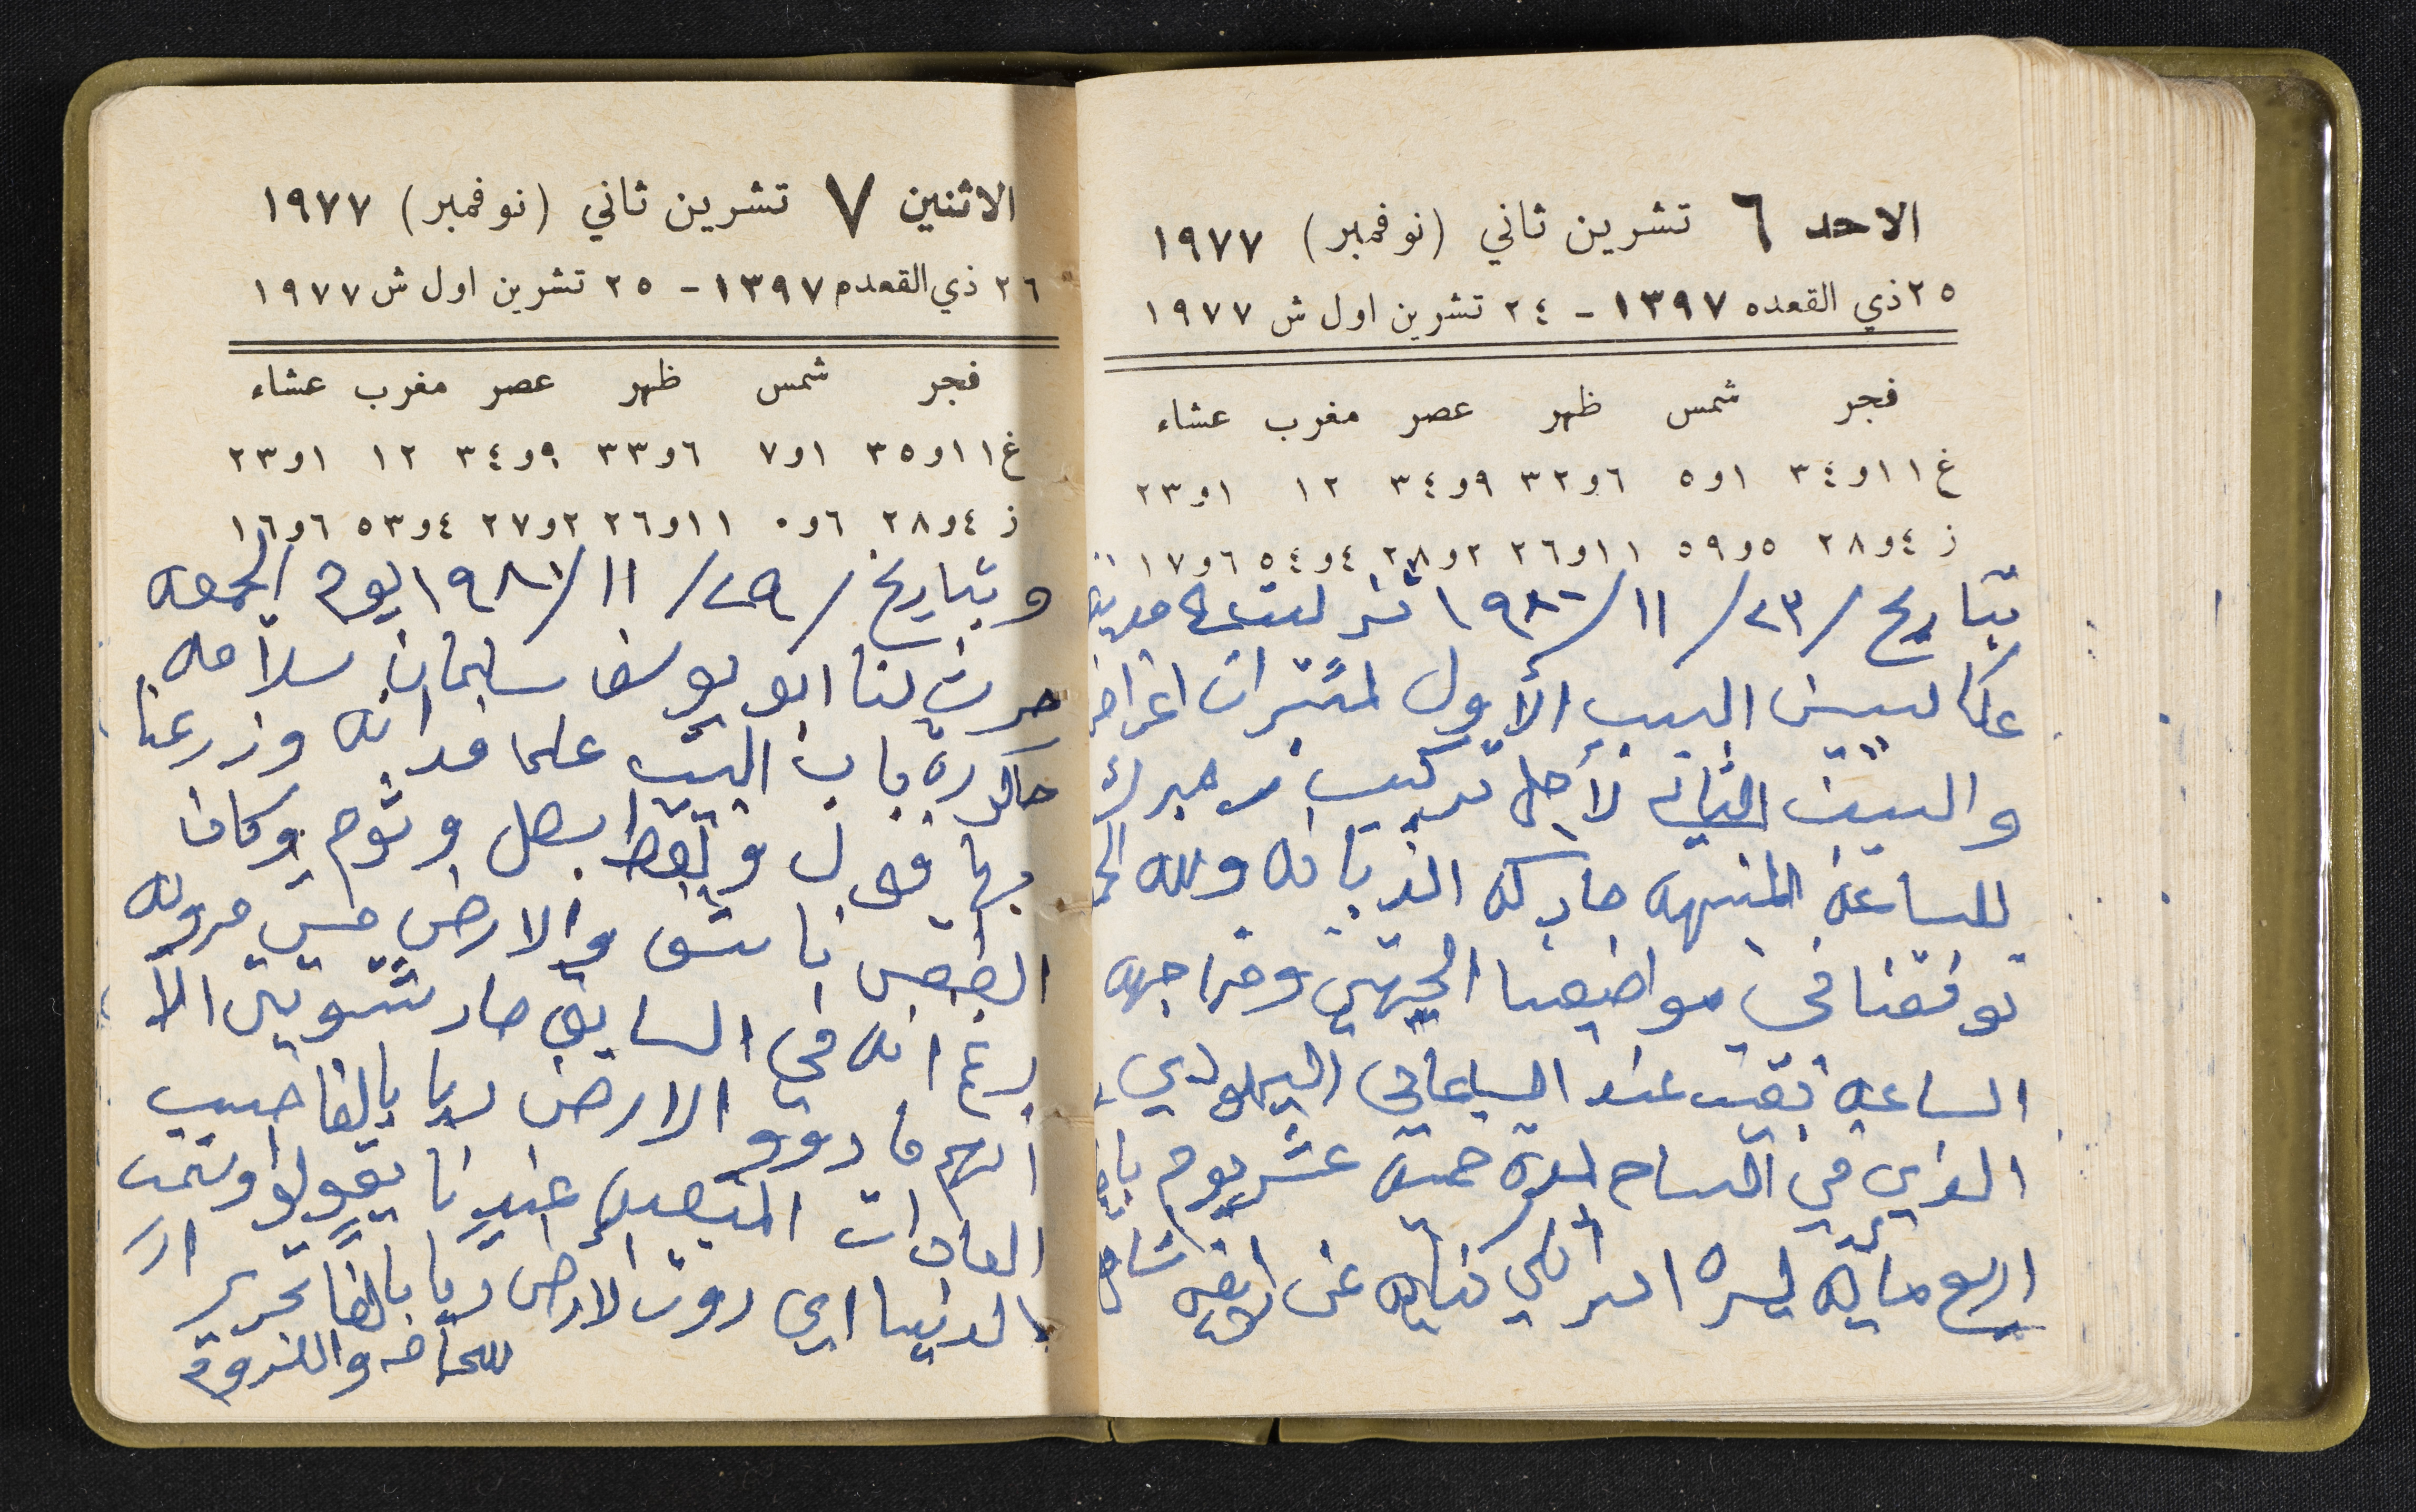 الاحد ٦ تشرين ثاني (نوفمبر) ١٩٧٧
٢٥ ذي القعده ١٣٩٧ - ٢٤ تشرين اول ش ١٩٧٧
فجر شمس ظهر عصر مغرب عشاء
غ ١١و٣٤ ١و٥ ٦و٣٢ ٩و٣٤ ١٢ ١و٢٣
ز ٤و٢٨ ٥و٥٩ ١١و٢٦ ٢و٢٨ ٤و٥٤ ٦و١٧
بتاريخ /٢٣/ ١١/ ١٩٨٠ نزلت مدينة
عكا البيت الأول لمشتراة اغراض
والبيت الثاني لأجل تركيب زمبرك
للساعة المنبهه ماركه الذبانه ولله الحمد
توفقنا في مواضيعنا الجهتين ومن جهه
الساعه بقيت عند الساعاتي اليهودي
الذي في الساح لمدة خمسة عشر يوم
اربع مايه ليره اسرائلي
الاثنين ٧ تشرين ثاني (نوفمبر) ١٩٧٧
٢٦ ذي القعده ١٣٩٧ - ٢٥ تشرين اول ش ١٩٧٧
فجر شمس ظهر عصر مغرب عشاء
غ ١١و٣٥ ١و٧ ٦و٣٣ ٩و٣٤ ١٢ ١و٢٣
ز ٤و٢٨ ٦و٠ ١١و٢٦ ٢و٢٧ ٤و٥٣ ٦و١٦
وبتاريخ /٢٩/ ١١/ ١٩٨٠ يوم الجمعه
حرث لنا ابو يوسف سليمان سلامه
حاكورة باب البيت على فدانه وزرعنا
بها فول وايضا بصل وثوم وكان
الطقس ناشف والارض مش مرويه
رغم انه في السابق صار شتوتين الا
انهم ما رووا الارض ريا بالغا حسب
العادات المتبعه عندنا يقولوا وشمت
بالدنيا اي روت الارض ريا بالغا